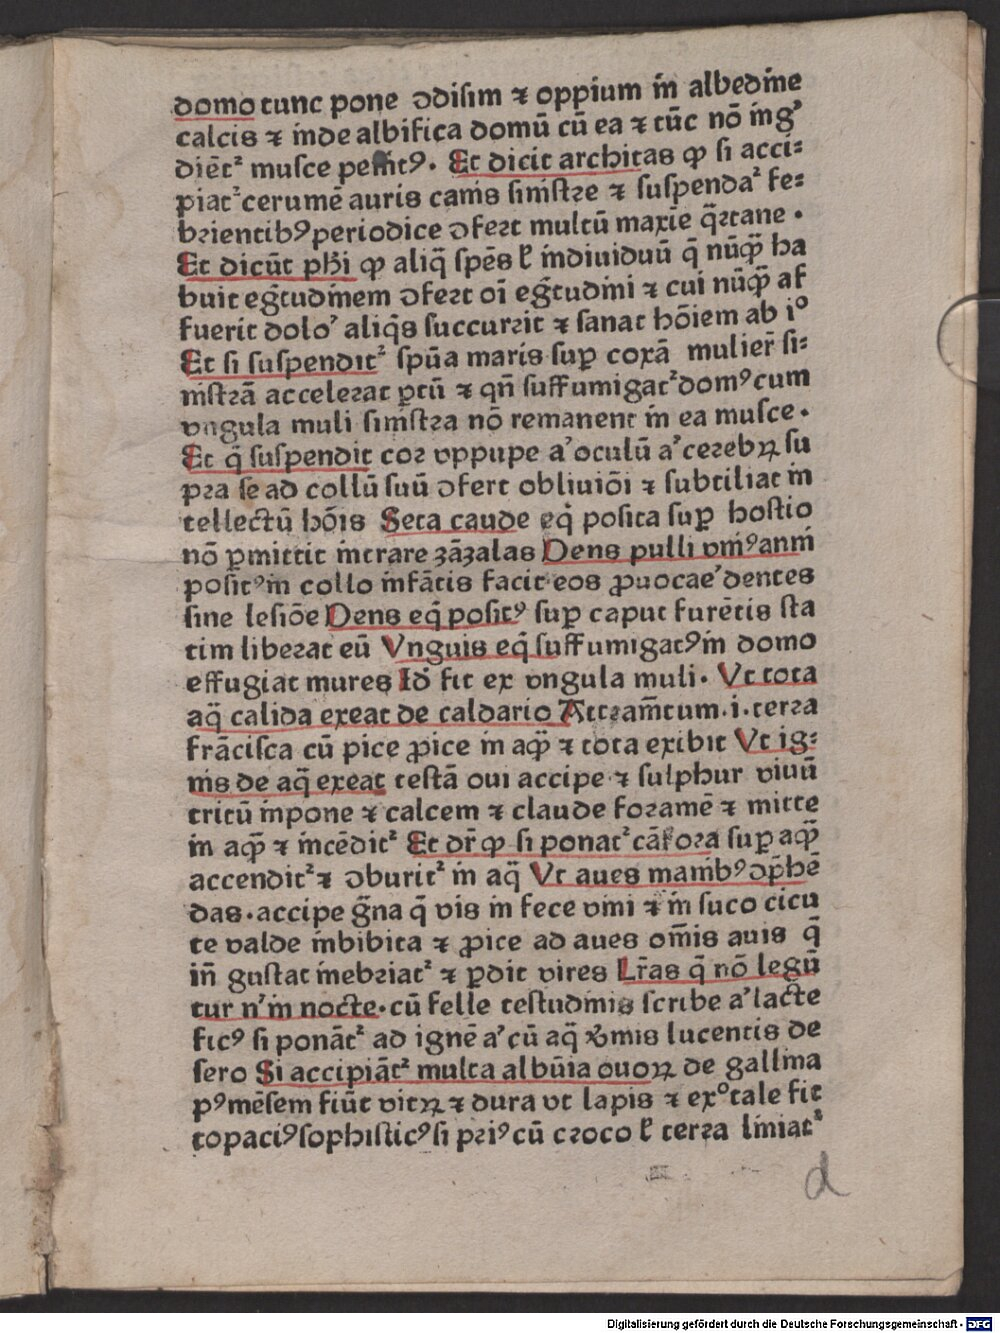 domo tunc pone ↄdisim ⁊ oppium in albedine
calcis ⁊ inde albifica domū cū ea ⁊ tūc nō ing'
diēt² musce peſſit⁹. Et dicit architas ꝙ si acci⸗
piat² cerumē auris canis sinistre ⁊ suspenda² fe⸗
brientib⁹ periodice ↄfert multū maxīe q̄rtane .
Et dicūt pħi ꝙ aliq̄ spēs ł indiuiduū q̄ nūꝙ̄ ha
buit eḡtudinem ↄfert oī eḡtudini ⁊ cui nūꝙ̄ af
fuerit dolo' aliq̄s succurrit ⁊ sanat hōiem ab i°
Et si suspendit² spūa maris suꝑ coxā mulier̄ si⸗
nistrā accelerat ꝑtū ⁊ qn̄ suffumigat² dom⁹ cum
vngula muli sinistra nō remanent in ea musce .
Et q̄ suspendit cor vppupe a' oculū a' cerebꝝ su
pra se ad collū suū ↄfert obliuiōi ⁊ subtiliat in
tellectū hōis Seta caude eq̄ posita suꝑ hostio
nō ꝑmittit intrare zāzalas Dens pulli vni⁹ anni
posit⁹ in collo infātis facit eos ꝓuocae' dentes
sine lesiōe Dens eq̄ posit⁹ suꝑ caput furētis sta
tim liberat eū Vnguis eq̄ suffumigat⁹ in domo
effugiat mures Id̄ fit ex vngula muli. Vt tota
aq̄ calida exeat de caldario Attram̄tum.i.terra
frācisca cū pice ꝓice in aqꝫ̄ ⁊ tota exibit Vt ig⸗
nis de aq̄ exeat testā oui accipe ⁊ sulphur viuū
tritū inpone ⁊ calcem ⁊ claude foramē ⁊ mitte
in aqꝫ̄ ⁊ incēdit² Et dr̄ ꝙ si ponat² cāfora suꝑ aqꝫ̄
accendit² ⁊ ↄburit² in aq̄ Vt aues manib⁹ ↄp̄hē
das.accipe ḡna q̄ vis in fece vini ⁊ in suco cicu
te valde inbibita ⁊ ꝓice ad aues om̄is auis q̄
in̄ gustat inebriat² ⁊ ꝑdit vires Lr̄as q̄ nō legū
tur n' in nocte.cū felle testudinis scribe a' lacte
fic⁹ si ponāt² ad ignē a' cū aq̄ v̄mis lucentis de
sero Si accipiāt² multa albūia ouoꝝ de gallina
p⁹ mēsem fiūt vitꝝ ⁊ dura vt lapis ⁊ ex° tale fit
topaci⁹ sophistic⁹ si pri⁹ cū croco ł terra liniat²
d
Digitalisierung gefördert durch die Deutsche Forschungsgemeinschaft - DFG